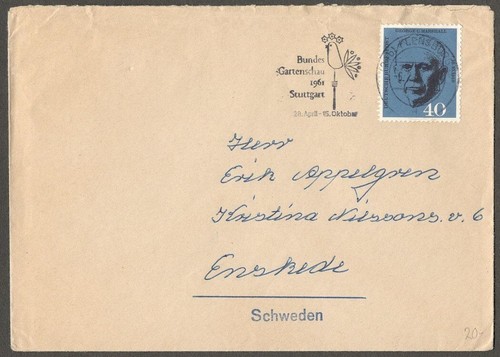 GEORGE C. MARSHALL
40
Bundes
Gartenschau
1961
Stuttgart
28. April - 15. Oktober
Herr
Erik Appelgren
Kristina Nilssons. v. 6
Enskede
Schweden
20-